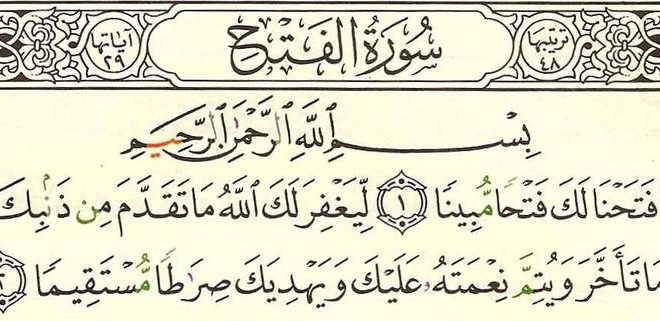 ترتيبها ٤٨
سُورَةُ الفَتْحِ
آياتها ٢٩
بِسْمِ ٱللَّهِ ٱلرَّحْمَٰنِ ٱلرَّحِيمِ
فَتَحْنَا لَكَ فَتْحًا مُّبِينًا ١ لِّيَغْفِرَ لَكَ ٱللَّهُ مَا تَقَدَّمَ مِن ذَنۢبِكَ
مَا تَأَخَّرَ وَيُتِمَّ نِعْمَتَهُۥ عَلَيْكَ وَيَهْدِيَكَ صِرَٰطًا مُّسْتَقِيمًا ٢